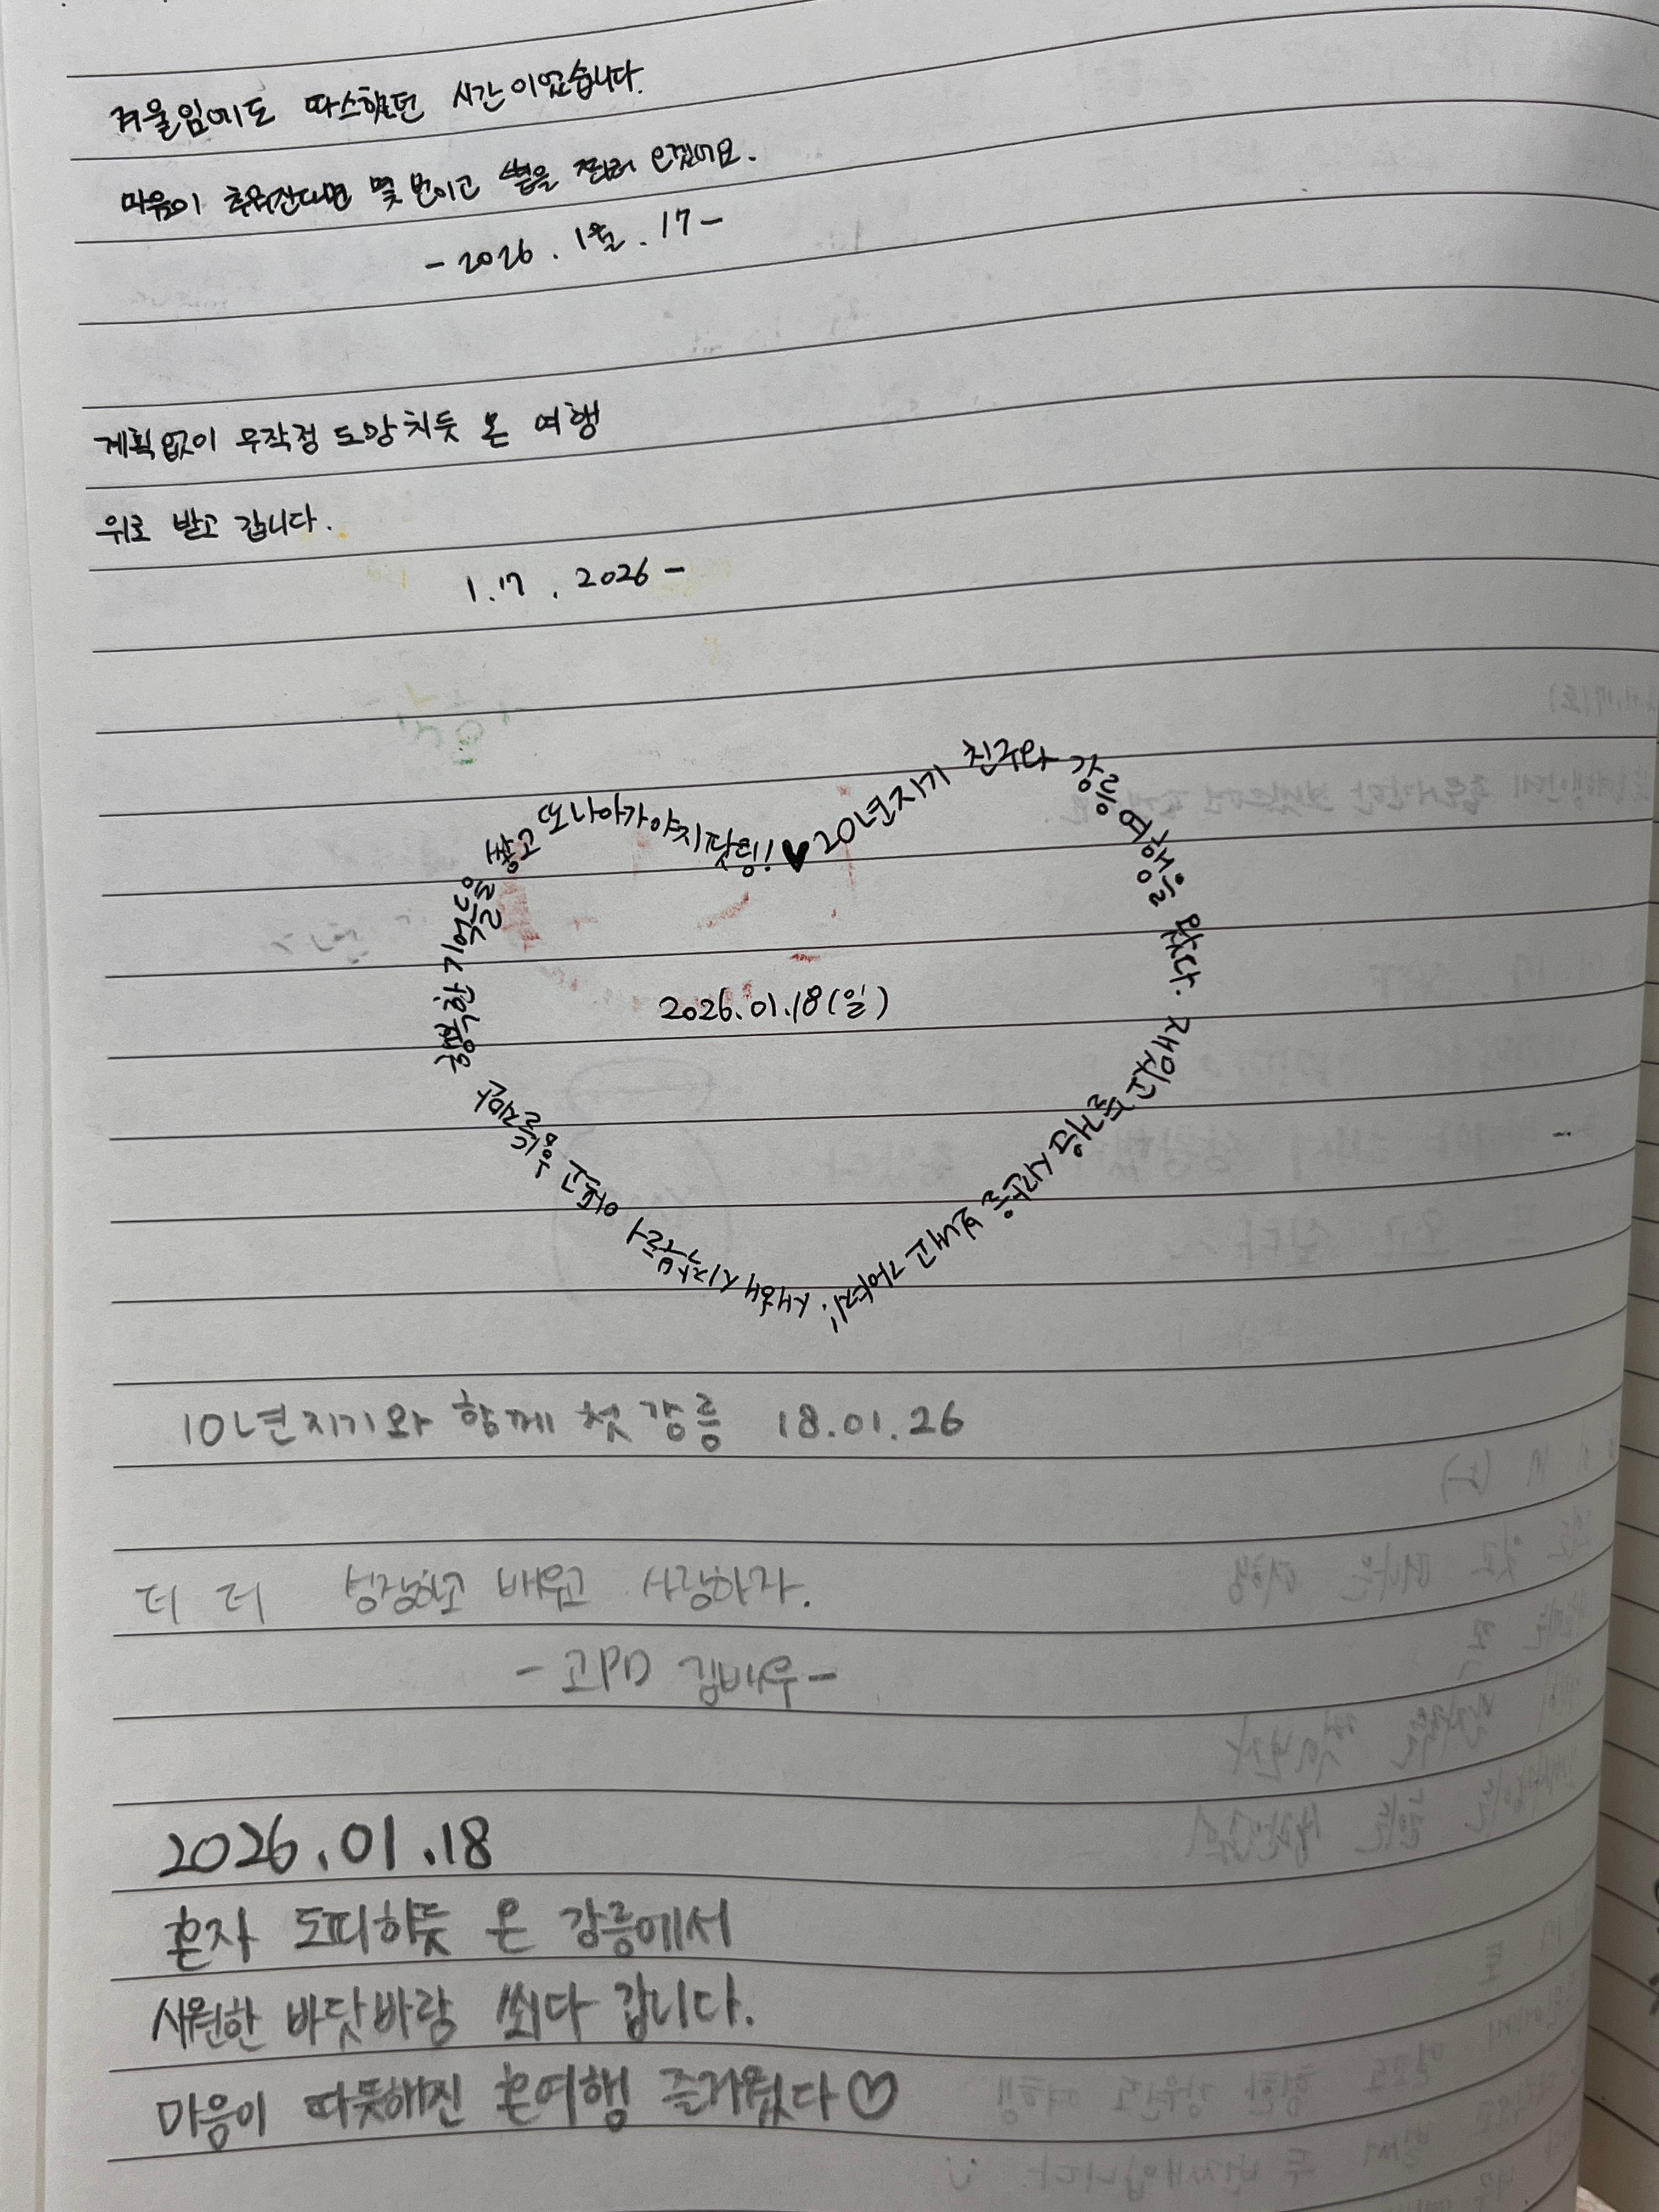 겨울임에도 따스했던 시간이었습니다.
마음이 추워진다면 몇 번이고 볕을 찾으러 오겠어요.
- 2026. 1월. 17 -
계획없이 무작정 도망치듯 온 여행
위로 받고 갑니다.
1. 17. 2026 -
♥ 20년지기 친구와 강릉 여행을 왔다. 재밌고 뜻깊은 시간을 보내고 가야지! 새해 시작을 웃고 행복한 기억을 쌓고 또 나아가야지 팟팅!
2026.01.18(일)
10년지기와 함께 첫 강릉 18.01.26
더 더 성장하고 배우고 사랑하자.
- 고PD 김배우 -
2026.01.18
혼자 도피하듯 온 강릉에서
시원한 바닷바람 쐬다 갑니다.
마음이 따뜻해진 혼여행 즐거웠다♡